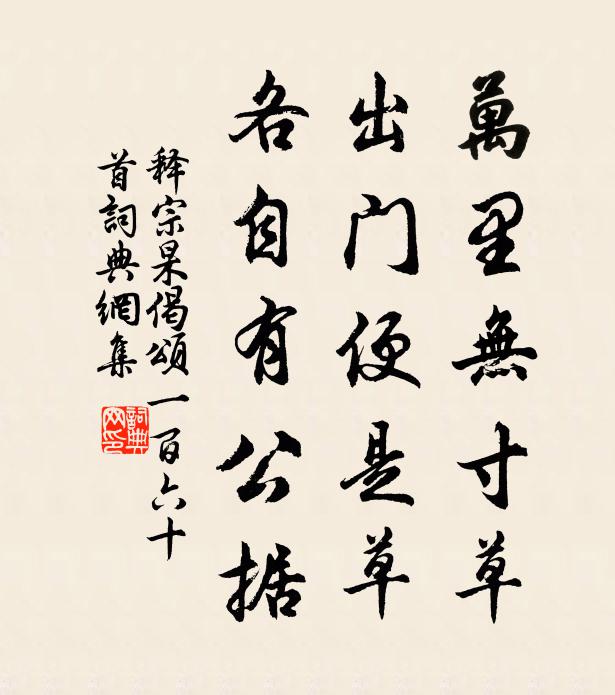 萬里無寸草
出门便是草
各自有公据
释宗杲偈頌一百六十
首詞典網集
詞典
网印